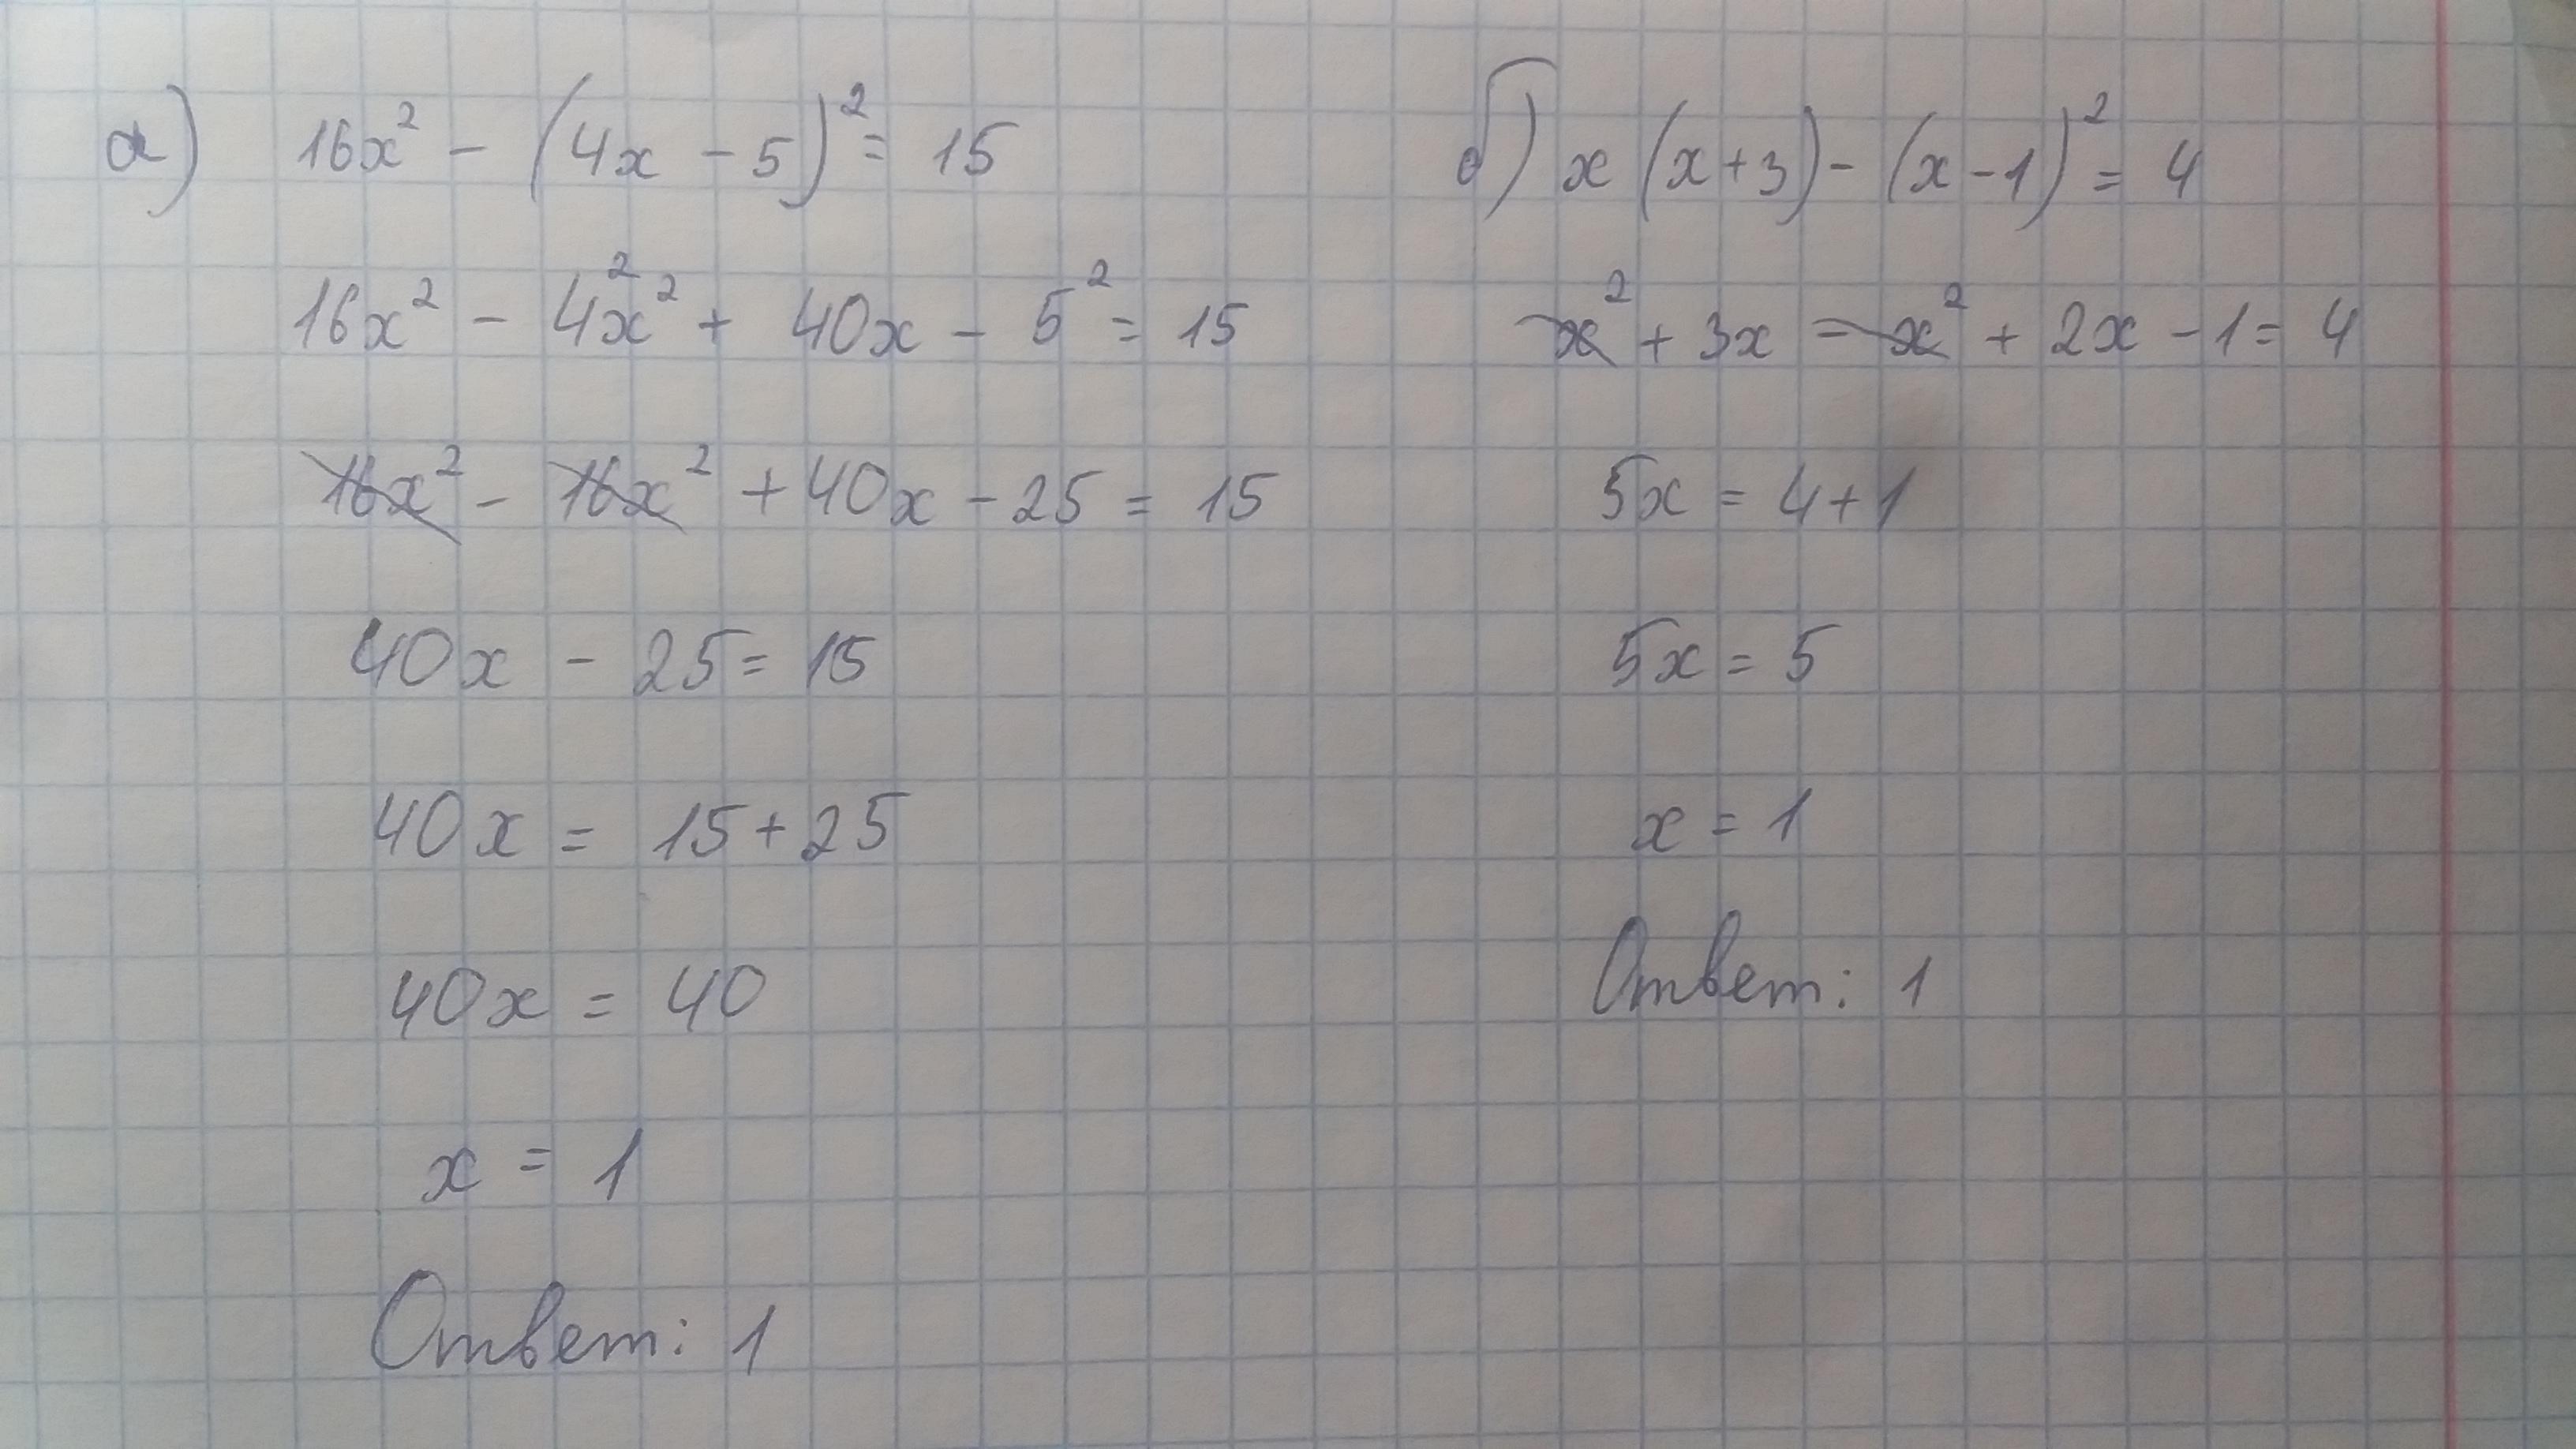 а) 16x² - (4x - 5)² = 15
16x² - 4²x² + 40x - 5² = 15
16x² - 16x² + 40x - 25 = 15
40x - 25 = 15
40x = 15 + 25
40x = 40
x = 1
Ответ: 1
б) x (x + 3) - (x - 1)² = 4
x² + 3x - x² + 2x - 1 = 4
5x = 4 + 1
5x = 5
x = 1
Ответ: 1